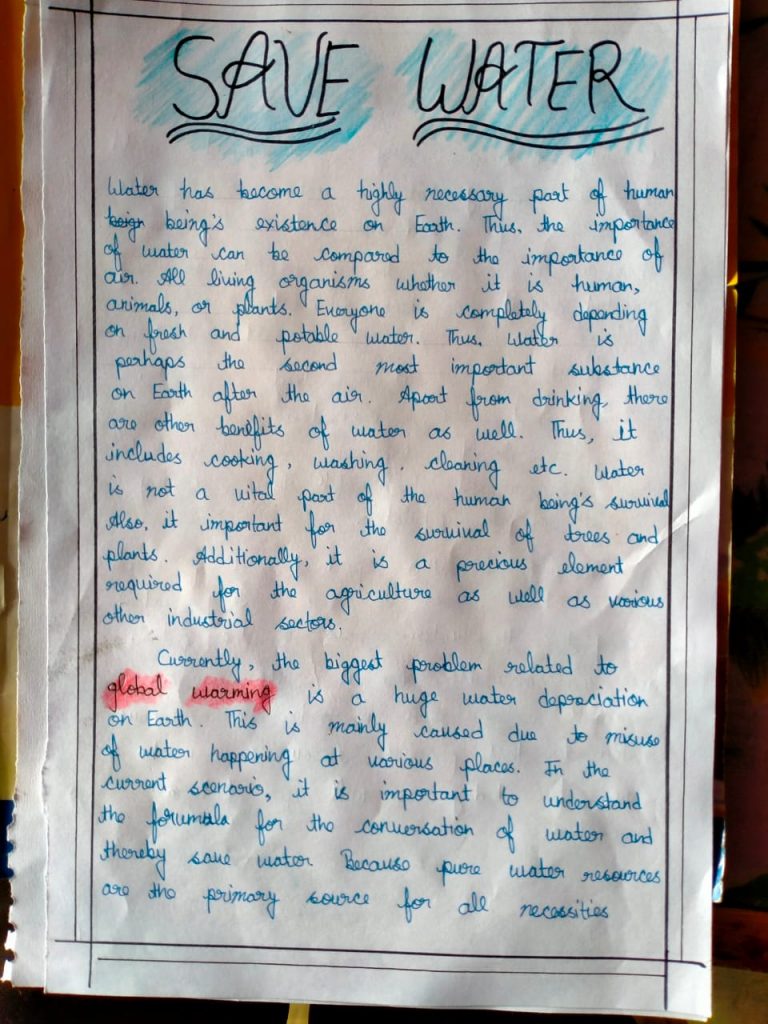 SAVE WATER
Water has become a highly necessary part of human
beign being's existence on Earth. Thus, the importance
of water can be compared to the importance of
air. All living organisms whether it is human,
animals, or plants. Everyone is completely depending
on fresh and potable water. Thus, Water is
perhaps the second most important substance
on Earth after the air. Apart from drinking, there
are other benefits of water as well. Thus, it
includes cooking, washing, cleaning etc. Water
is not a vital part of the human being's survival
Also, it important for the survival of trees and
plants. Additionally, it is a precious element
required for the agriculture as well as various
other industrial sectors.
Currently, the biggest problem related to
global warming is a huge water depreciation
on Earth. This is mainly caused due to misuse
of water happening at various places. In the
current scenario, it is important to understand
the forumala for the conversation of water and
thereby save water. Because pure water resources
are the primary source for all necessities